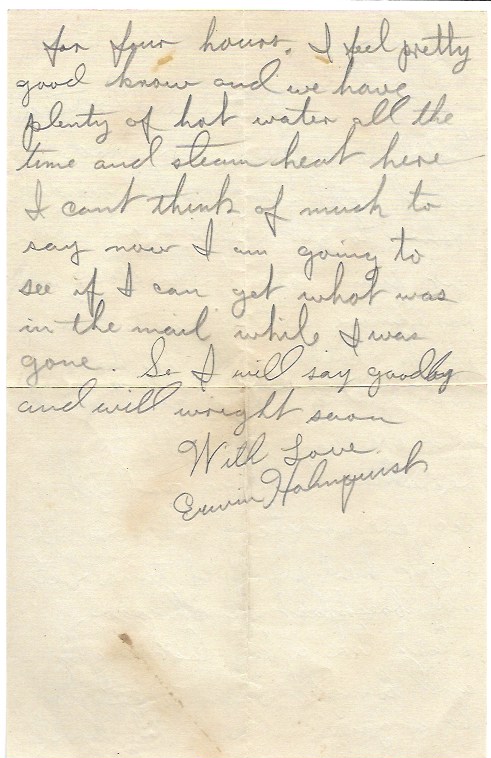 for four hours. I feel pretty
good know and we have
plenty of hot water all the
time and steam heat here
I cant think of much to
say now I am going to
see if I can get what was
in the mail while I was
gone. So I will say goodby
and will wright soon
With Love
Erwin Holmquist